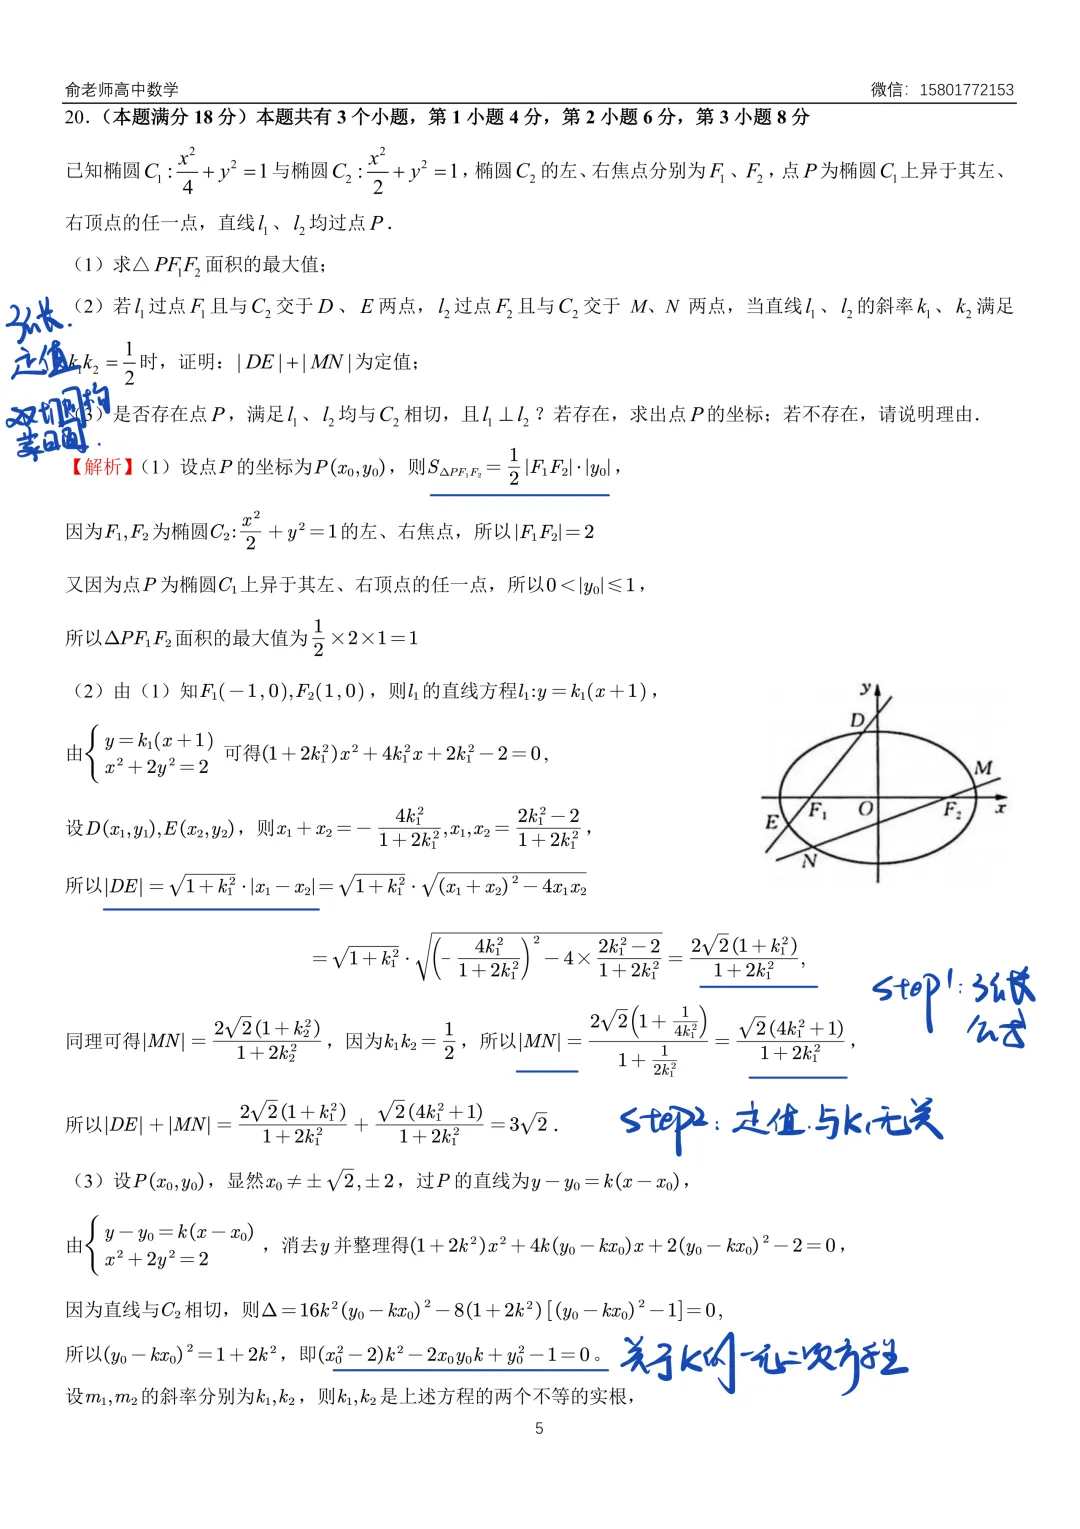 俞老师高中数学 微信：15801772153
20．（本题满分 18 分）本题共有 3 个小题，第 1 小题 4 分，第 2 小题 6 分，第 3 小题 8 分
已知椭圆 C₁ : x²/4 + y² = 1 与椭圆 C₂ : x²/2 + y² = 1，椭圆 C₂ 的左、右焦点分别为 F₁、F₂，点 P 为椭圆 C₁ 上异于其左、
右顶点的任一点，直线 l₁、l₂ 均过点 P．
（1）求△ PF₁F₂ 面积的最大值；
（2）若 l₁ 过点 F₁ 且与 C₂ 交于 D、E 两点，l₂ 过点 F₂ 且与 C₂ 交于 M、N 两点，当直线 l₁、l₂ 的斜率 k₁、k₂ 满足
弦长.
k₁k₂ = 1/2 时，证明：| DE | + | MN | 为定值；
定值
（3）是否存在点 P，满足 l₁、l₂ 均与 C₂ 相切，且 l₁ ⊥ l₂？若存在，求出点 P 的坐标；若不存在，请说明理由．
双切同构
蒙日圆.
【解析】（1）设点 P 的坐标为 P(x₀,y₀)，则 S△PF₁F₂ = 1/2 |F₁F₂|·|y₀|，
因为 F₁,F₂ 为椭圆 C₂: x²/2 + y² = 1 的左、右焦点，所以 |F₁F₂| = 2
又因为点 P 为椭圆 C₁ 上异于其左、右顶点的任一点，所以 0 < |y₀| ⩽ 1，
所以 ΔPF₁F₂ 面积的最大值为 1/2 × 2 × 1 = 1
（2）由（1）知 F₁(−1,0),F₂(1,0)，则 l₁ 的直线方程 l₁:y = k₁(x+1)，
由 { y = k₁(x+1)
x² + 2y² = 2 可得 (1+2k₁²)x² + 4k₁²x + 2k₁² − 2 = 0,
设 D(x₁,y₁),E(x₂,y₂)，则 x₁ + x₂ = − 4k₁²/(1+2k₁²), x₁,x₂ = (2k₁²−2)/(1+2k₁²)，
所以 |DE| = √(1+k₁²) · |x₁ − x₂| = √(1+k₁²) · √((x₁+x₂)² − 4x₁x₂)
= √(1+k₁²) · √((−4k₁²/(1+2k₁²))² − 4 × (2k₁²−2)/(1+2k₁²)) = 2√2(1+k₁²)/(1+2k₁²),
step1: 弦长
公式
同理可得 |MN| = 2√2(1+k₂²)/(1+2k₂²)，因为 k₁k₂ = 1/2，所以 |MN| = 2√2(1+1/(4k₁²))/(1+1/(2k₁²)) = √2(4k₁²+1)/(1+2k₁²)，
所以 |DE| + |MN| = 2√2(1+k₁²)/(1+2k₁²) + √2(4k₁²+1)/(1+2k₁²) = 3√2．
step2: 定值.与k₁无关
（3）设 P(x₀,y₀)，显然 x₀ ≠ ±√2,±2，过 P 的直线为 y − y₀ = k(x − x₀)，
由 { y − y₀ = k(x − x₀)
x² + 2y² = 2 ，消去 y 并整理得 (1+2k²)x² + 4k(y₀ − kx₀)x + 2(y₀ − kx₀)² − 2 = 0，
因为直线与 C₂ 相切，则 Δ = 16k²(y₀ − kx₀)² − 8(1+2k²)[(y₀ − kx₀)² − 1] = 0,
所以 (y₀ − kx₀)² = 1 + 2k²，即 (x₀² − 2)k² − 2x₀y₀k + y₀² − 1 = 0。
关于K的一元二次方程
设 m₁,m₂ 的斜率分别为 k₁,k₂，则 k₁,k₂ 是上述方程的两个不等的实根，
y
D
M
F₁
O
F₂
x
E
N
5